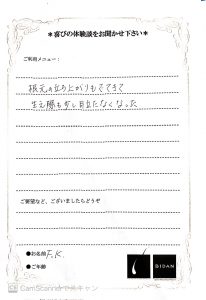 ＊喜びの体験談をお聞かせ下さい＊
ご利用メニュー：
根元の立ち上がりもでてきて
生え際も少し目立たなくなった
ご要望など、ございましたらどうぞ
●お名前 F.K.
●ご年齢
BIDAN
CS CamScannerでスキャン